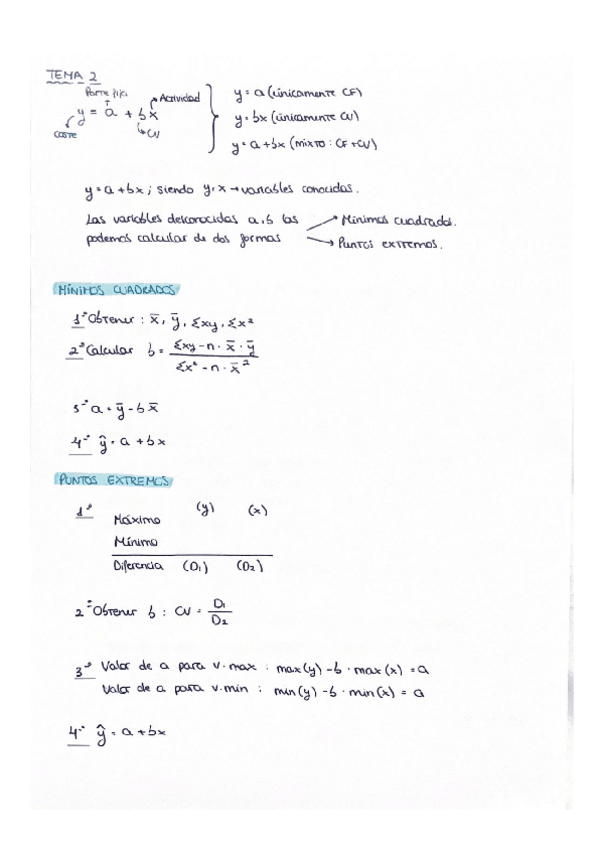 TEMA 2
Parte fija
Actividad
y = a + bx
coste
CV
y = a (únicamente CF)
y = bx (únicamente CV)
y = a + bx (mixto: CF + CV)
y = a + bx ; siendo y, x → variables conocidas.
Las variables desconocidas a, b las
podemos calcular de dos formas
→ Mínimos cuadrados.
→ Puntos extremos.
MÍNIMOS CUADRADOS
1º Obtener : x̄, ȳ, Σxy, Σx²
2º Calcular b = (Σxy - n · x̄ · ȳ) / (Σx² - n · x̄²)
3º a = ȳ - b x̄
4º ŷ = a + bx
PUNTOS EXTREMOS
1º (y) (x)
Máximo
Mínimo
Diferencia (D₁) (D₂)
2º Obtener b : CV = D₁ / D₂
3º Valor de a para v.max : max(y) - b · max(x) = a
Valor de a para v.min : min(y) - b · min(x) = a
4º ŷ = a + bx